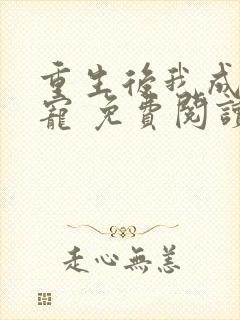 重生後我成
寵 免費閱讀
走心無恙